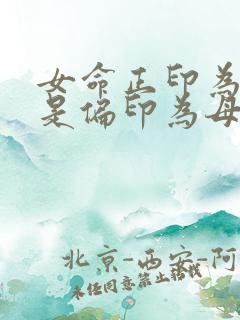 女命正印为
是偏印为母
北京-西安-阿
未经同意禁止搬线